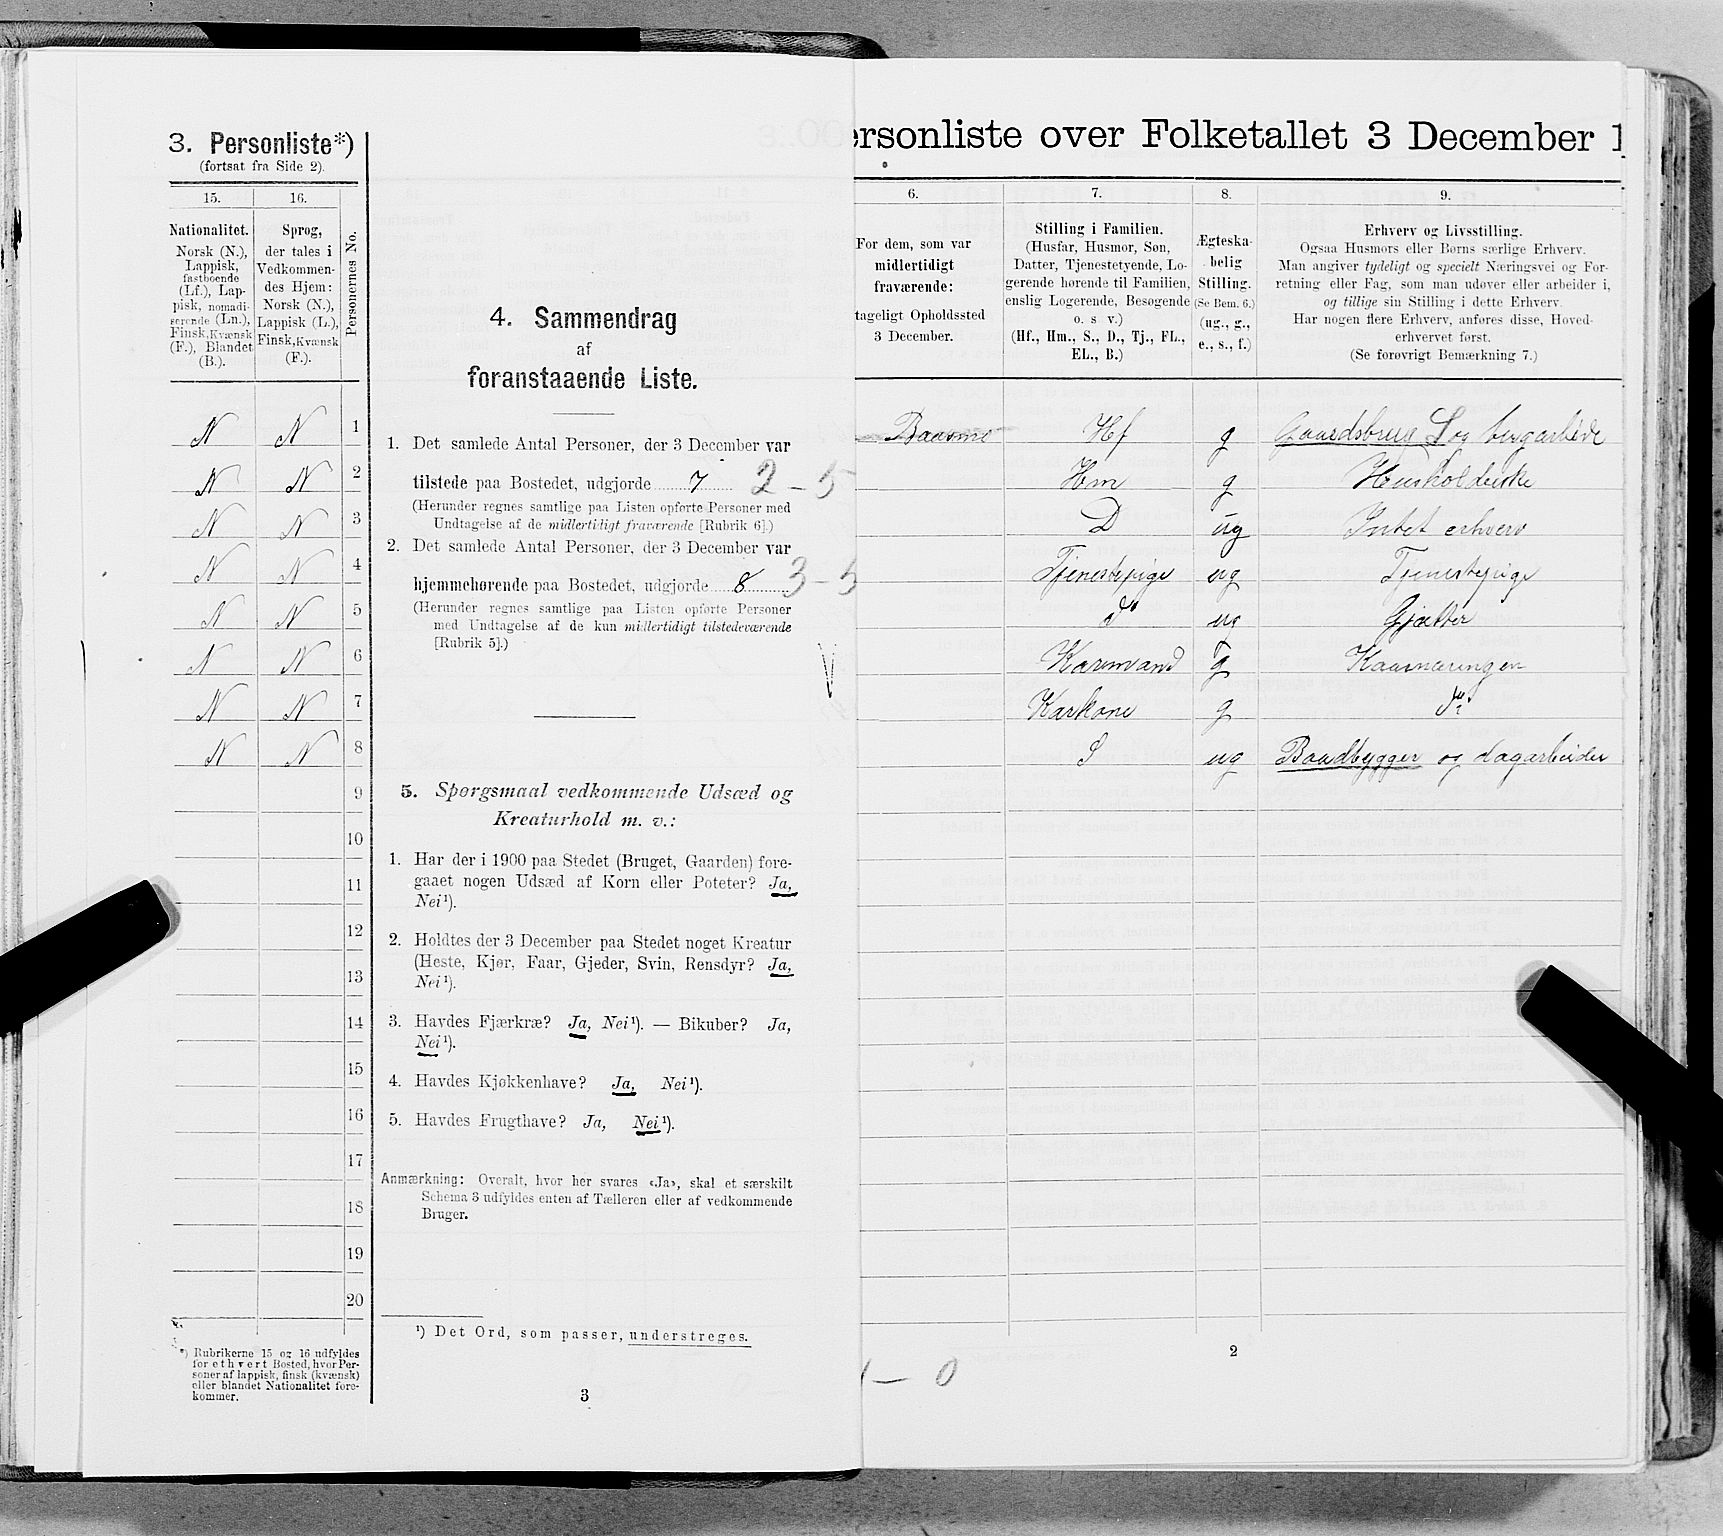 3. Personliste*)
(fortsat fra Side 2).
15.
16.
Personernes No.
Nationalitet.
Norsk (N.),
Lappisk,
fastboende
(Lf.), Lap-
pisk, nomadi-
serende (Ln.),
Finsk, Kvænsk
(F.), Blandet
(B.).
Sprog,
der tales i
Vedkommen-
des Hjem:
Norsk (N.),
Lappisk (L.),
Finsk, Kvænsk
(F.).
N N 1
N N 2
N N 3
N N 4
N N 5
N N 6
N N 7
N N 8
9
10
11
12
13
14
15
16
17
18
19
20
*) Rubrikerne 15 og 16 udfyldes
for ethvert Bosted, hvor Per-
soner af lappisk, finsk (kvænsk)
eller blandet Nationalitet fore-
kommer.
4. Sammendrag
af
foranstaaende Liste.
1. Det samlede Antal Personer, der 3 December var
tilstede paa Bostedet, udgjorde 7 2 – 5
(Herunder regnes samtlige paa Listen opførte Personer med
Undtagelse af de midlertidigt fraværende [Rubrik 6].)
2. Det samlede Antal Personer, der 3 December var
hjemmehørende paa Bostedet, udgjorde 8 3 – 5
(Herunder regnes samtlige paa Listen opførte Personer
med Undtagelse af de kun midlertidigt tilstedeværende
[Rubrik 5].)
5. Spørgsmaal vedkommende Udsæd og
Kreaturhold m. v.:
1. Har der i 1900 paa Stedet (Bruget, Gaarden) fore-
gaaet nogen Udsæd af Korn eller Poteter? Ja,
Nei¹).
2. Holdtes der 3 December paa Stedet noget Kreatur
(Heste, Kjør, Faar, Gjeder, Svin, Rensdyr? Ja,
Nei¹).
3. Havdes Fjærkræ? Ja, Nei¹). — Bikuber? Ja,
Nei¹).
4. Havdes Kjøkkenhave? Ja, Nei¹).
5. Havdes Frugthave? Ja, Nei¹).
Anmærkning: Overalt, hvor her svares «Ja», skal et særskilt
Schema 3 udfyldes enten af Tælleren eller af vedkommende
Bruger.
¹) Det Ord, som passer, understreges.
3
ersonliste over Folketallet 3 December 1
6.
7.
8.
9.
For dem, som var
midlertidigt
fraværende:
tageligt Opholdssted
3 December.
Stilling i Familien.
(Husfar, Husmor, Søn,
Datter, Tjenestetyende, Lo-
gerende hørende til Familien,
enslig Logerende, Besøgende
o. s v.)
(Hf., Hm., S., D., Tj., FL.,
EL., B.)
Ægteska-
belig
Stilling.
(Se Bem. 6.)
(ug., g.,
e., s., f.)
Erhverv og Livsstilling.
Ogsaa Husmors eller Børns særlige Erhverv.
Man angiver tydeligt og specielt Næringsvei og For-
retning eller Fag, som man udøver eller arbeider i,
og tillige sin Stilling i dette Erhverv.
Har nogen flere Erhverv, anføres disse, Hoved-
erhvervet først.
(Se forøvrigt Bemærkning 7.)
Baasmo Hf g Gaardsbrug S og bergarbeide
Hm g Husholderske
D ug Intet erhverv
Tjenestepige ug Tjenestepige
do ug Gjætter
Karmand g Kaarnæringen
Karkone g do
S ug Baadbygger og dagarbeider
– 0
2